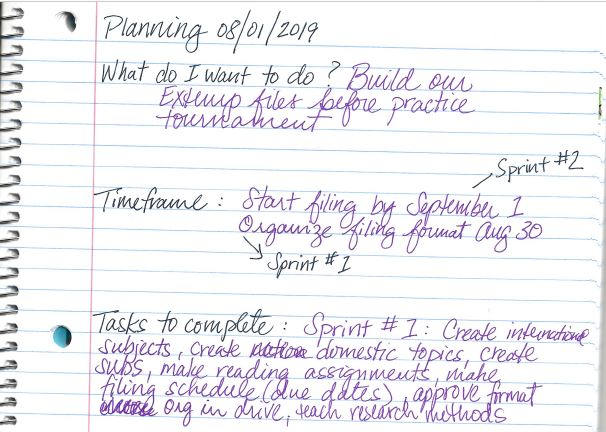 Planning 08/01/2019
What do I want to do? Build our
Extemp files before practice
tournament
Sprint #2
Timeframe: Start filing by September 1
Organize filing format Aug 30
Sprint #1
Tasks to complete: Sprint #1: Create international
subjects, create domestic topics, create
subs, make reading assignments, make
filing schedule (due dates), approve format
org in drive, teach research methods